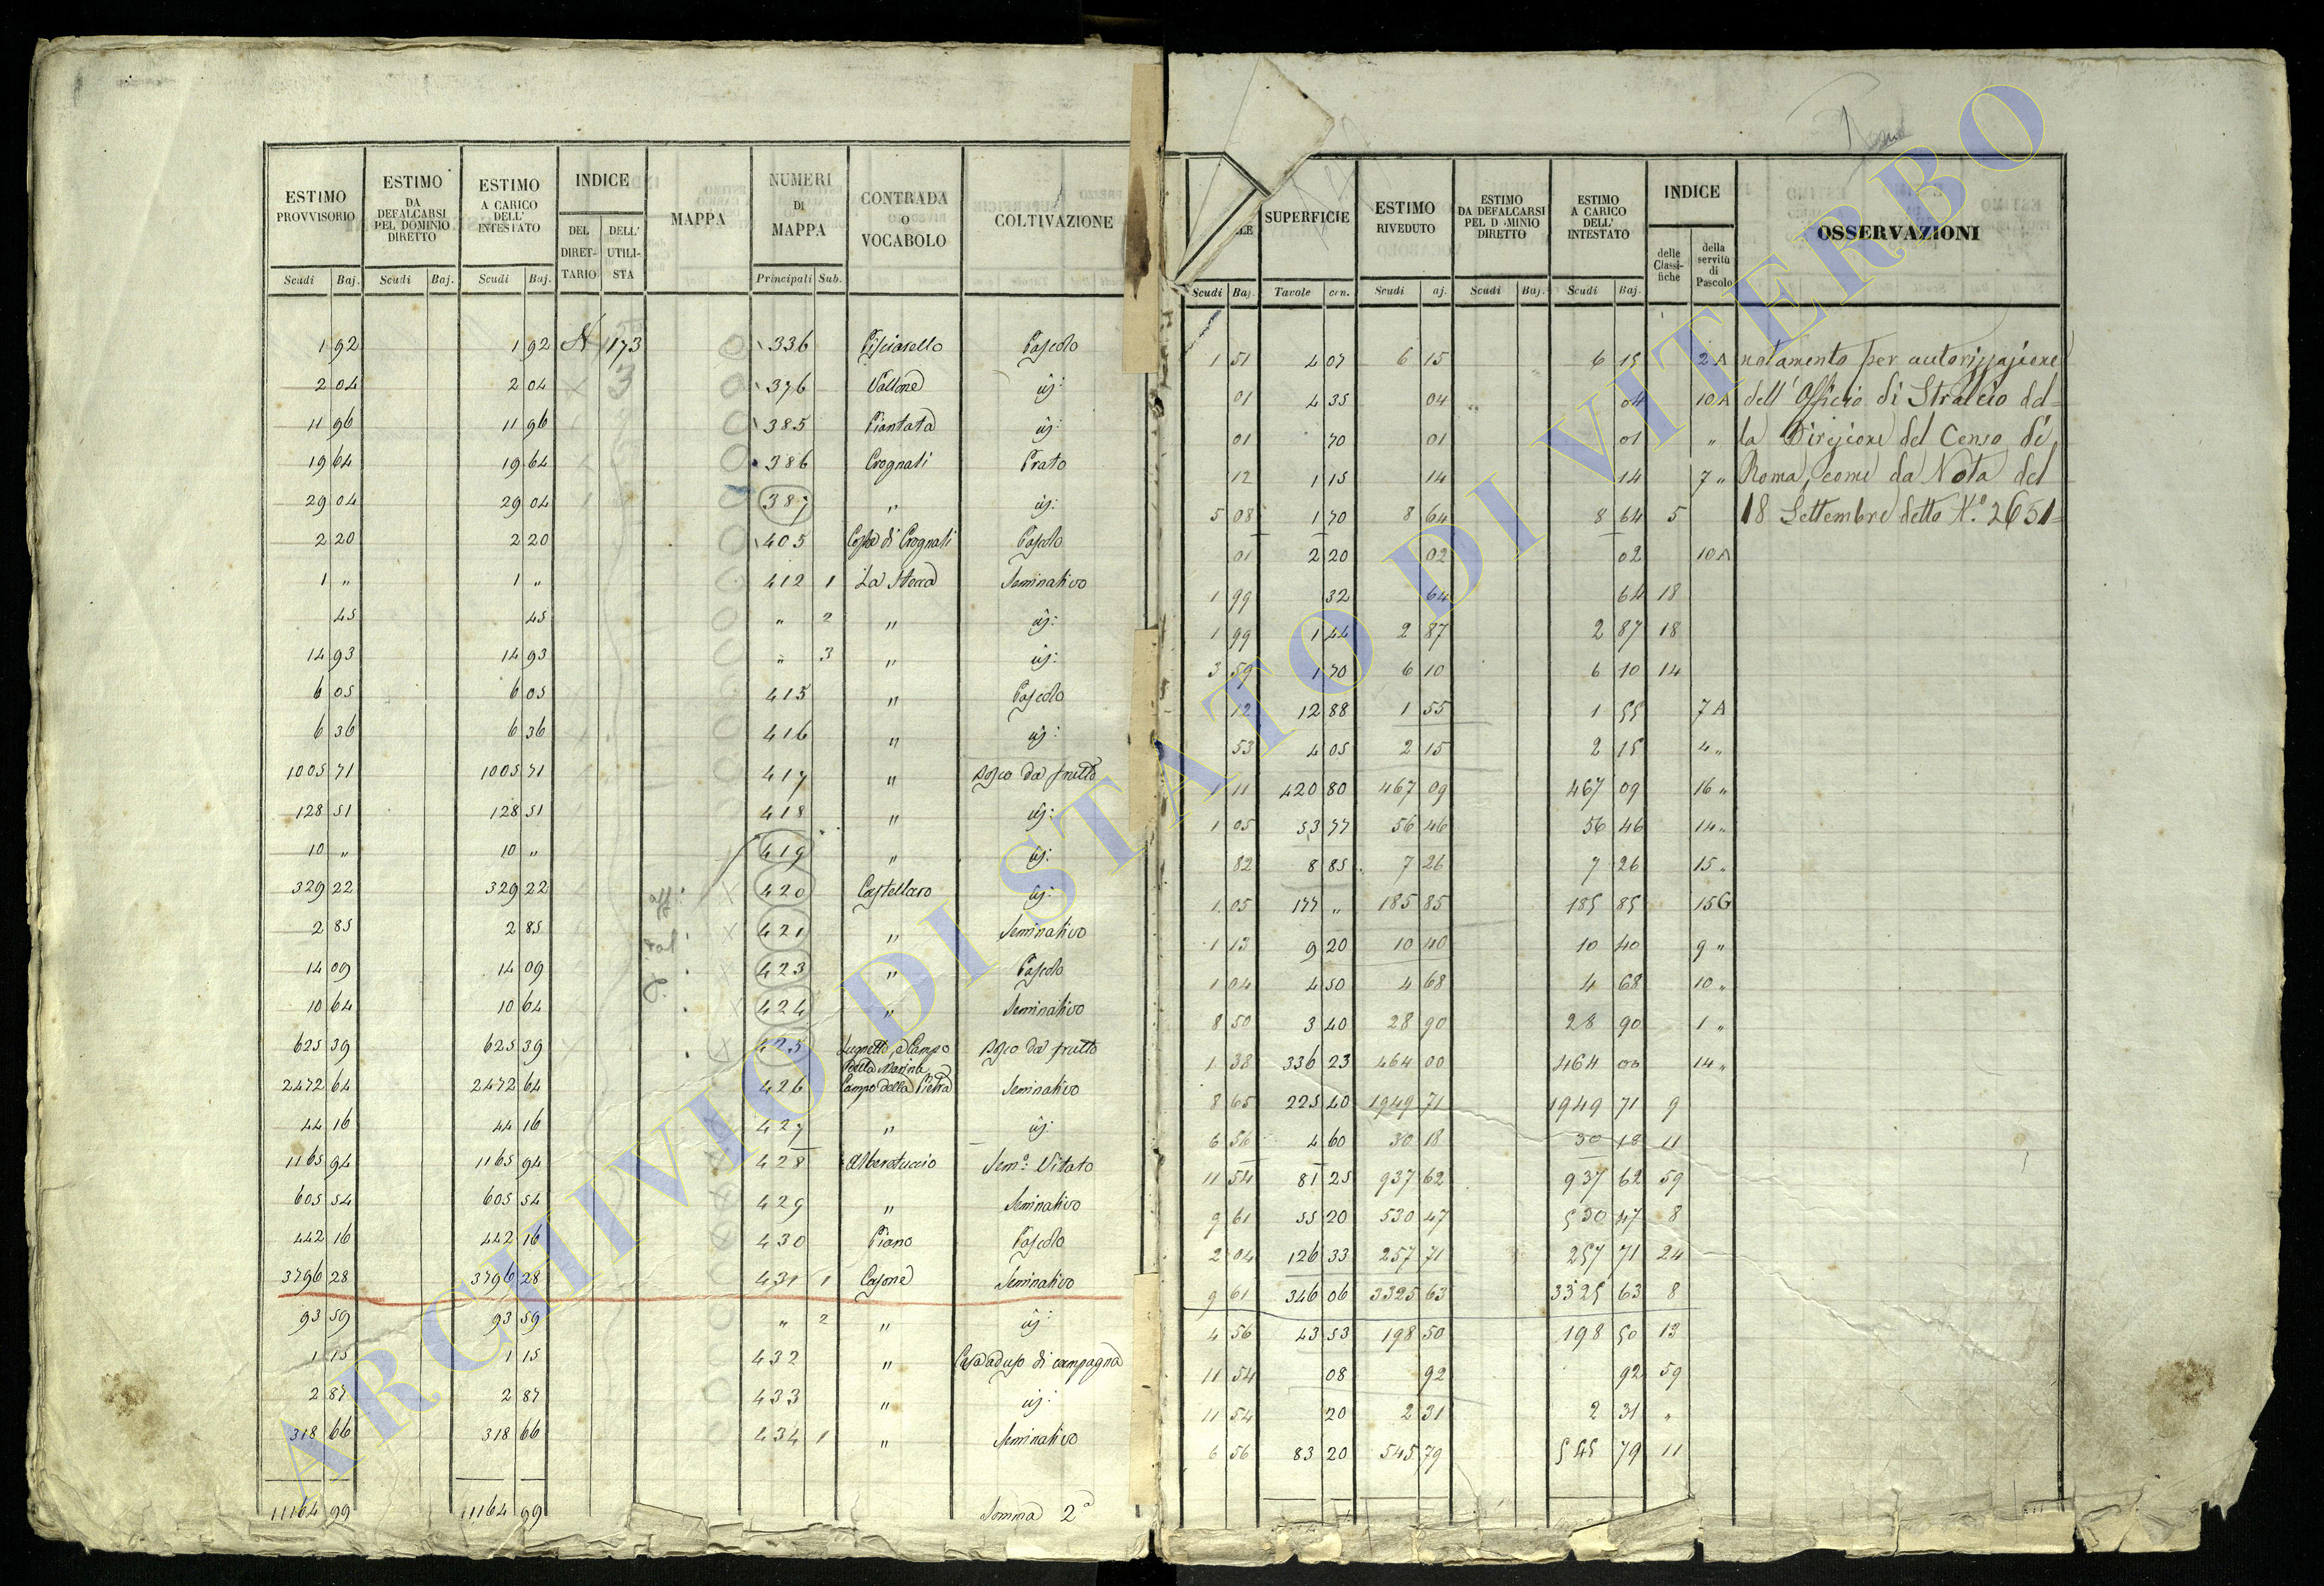 ESTIMO PROVVISORIO | ESTIMO DA DEFALCARSI PEL DOMINIO DIRETTO | ESTIMO A CARICO DELL' INTESTATO | INDICE | MAPPA | NUMERI DI MAPPA | CONTRADA o VOCABOLO | COLTIVAZIONE
DEL DIRETTARIO | DELL' UTILISTA
Scudi | Baj. | Scudi | Baj. | Scudi | Baj. | Principali | Sub.
1 92 | 1 92 | 173 | 336 | Pisciarello | Pascolo
2 04 | 2 04 | 376 | Vallone | id:
11 96 | 11 96 | 385 | Piantata | id:
19 64 | 19 64 | 386 | Crognali | Prato
29 04 | 29 04 | 387 | " | id:
2 20 | 2 20 | 405 | Costa di Crognali | Pascolo
1 " | 1 " | 412 | 1 | La Stecca | Seminativo
45 | 45 | " | 2 | " | id:
14 93 | 14 93 | " | 3 | " | id:
6 05 | 6 05 | 415 | " | Pascolo
6 36 | 6 36 | 416 | " | id:
1005 71 | 1005 71 | 417 | " | Bosco da frutto
128 51 | 128 51 | 418 | " | id:
10 " | 10 " | 419 | " | id:
329 22 | 329 22 | 420 | Castellaro | id:
2 85 | 2 85 | 421 | " | Seminativo
14 09 | 14 09 | 423 | " | Pascolo
10 64 | 10 64 | 424 | " | Seminativo
625 39 | 625 39 | 425 | Campo della Marina | Bosco da frutto
2472 64 | 2472 64 | 426 | Campo della Pietra | Seminativo
44 16 | 44 16 | 427 | " | id:
1165 94 | 1165 94 | 428 | Alberetuccio | Sem.º Vitato
605 54 | 605 54 | 429 | " | Seminativo
442 16 | 442 16 | 430 | Piano | Pascolo
3796 28 | 3796 28 | 431 | 1 | Casone | Seminativo
93 59 | 93 59 | " | 2 | " | id:
1 15 | 1 15 | 432 | " | Casa ad uso di campagna
2 87 | 2 87 | 433 | " | id:
318 66 | 318 66 | 434 | 1 | " | Seminativo
11164 99 | 11164 99 | Somma 2ª
SUPERFICIE | ESTIMO RIVEDUTO | ESTIMO DA DEFALCARSI PEL DOMINIO DIRETTO | ESTIMO A CARICO DELL' INTESTATO | INDICE | OSSERVAZIONI
delle Classifiche | della servitù di Pascolo
Scudi | Baj. | Tavole | cen. | Scudi | aj. | Scudi | Baj. | Scudi | Baj.
1 51 | 4 07 | 6 15 | 6 15 | 2 A | notamento per autorizzazione
01 | 4 35 | 04 | 04 | 10 A | dell' Officio di Stralcio del=
01 | 70 | 01 | 01 | " | la Direzione del Censo di
12 | 1 15 | 14 | 14 | 7 " | Roma, come da Nota del
5 08 | 1 70 | 8 64 | 8 64 | 5 | 18 Settembre detto N.º 2651=
01 | 2 20 | 02 | 02 | 10 A
1 99 | 32 | 64 | 64 | 18
1 99 | 1 44 | 2 87 | 2 87 | 18
3 59 | 1 70 | 6 10 | 6 10 | 14
12 | 12 88 | 1 55 | 1 55 | 7 A
53 | 4 05 | 2 15 | 2 15 | 4 "
1 11 | 420 80 | 467 09 | 467 09 | 16 "
1 05 | 53 77 | 56 46 | 56 46 | 14 "
82 | 8 85 | 7 26 | 7 26 | 15 "
1 05 | 177 " | 185 85 | 185 85 | 15 G
1 13 | 9 20 | 10 40 | 10 40 | 9 "
1 04 | 4 50 | 4 68 | 4 68 | 10 "
8 50 | 3 40 | 28 90 | 28 90 | 1 "
1 38 | 336 23 | 464 00 | 464 00 | 14 "
8 65 | 225 40 | 1949 71 | 1949 71 | 9
6 56 | 4 60 | 30 18 | 30 18 | 11
11 54 | 81 25 | 937 62 | 937 62 | 59
9 61 | 55 20 | 530 47 | 530 47 | 8
2 04 | 126 33 | 257 71 | 257 71 | 24
9 61 | 346 06 | 3325 63 | 3325 63 | 8
4 56 | 43 53 | 198 50 | 198 50 | 13
11 54 | 08 | 92 | 92 | 59
11 54 | 20 | 2 31 | 2 31 | "
6 56 | 83 20 | 545 79 | 545 79 | 11
ARCHIVIO DI STATO DI VITERBO